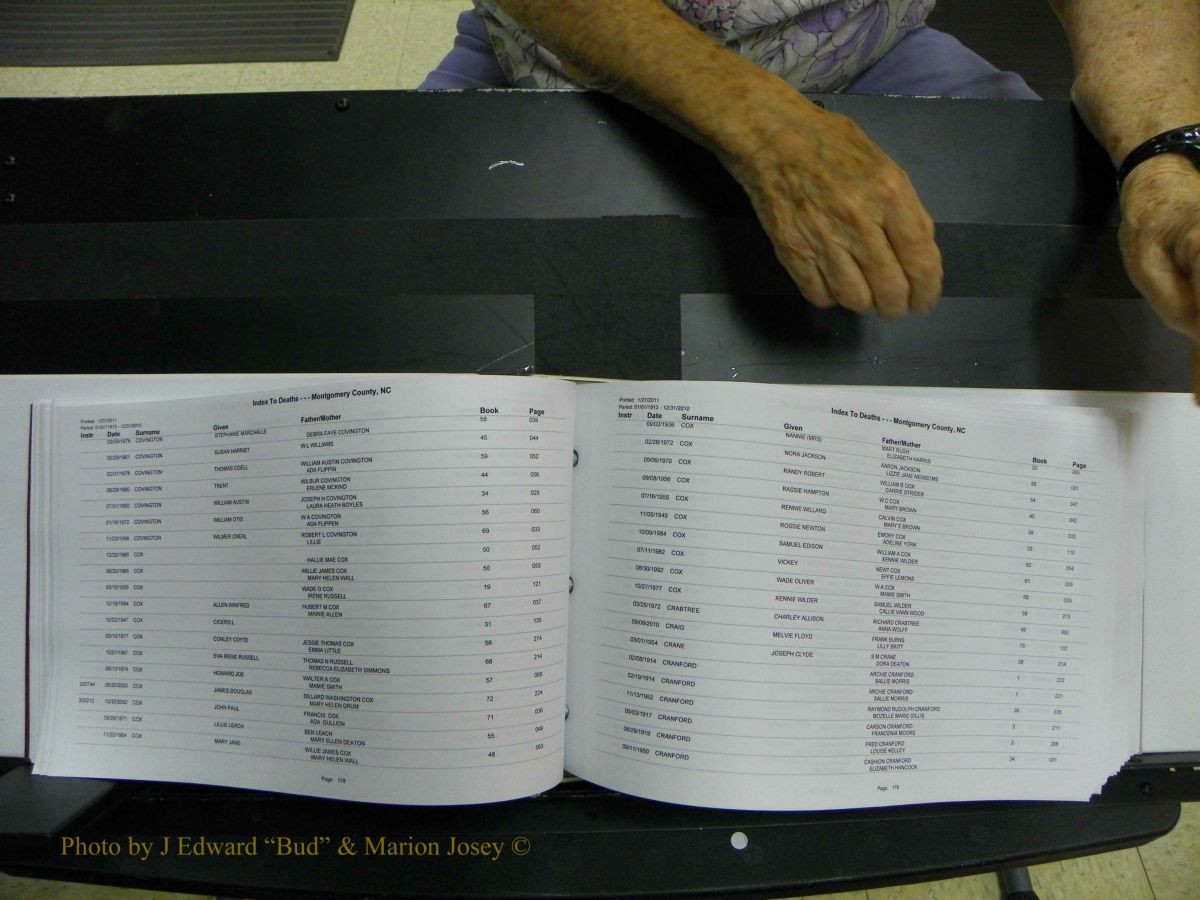 Index To Deaths - - - Montgomery County, NC
Printed: 1/27/2011
Period: 01/01/1913 - 12/31/2010
Instr Date Surname Given Father/Mother Book Page
03/09/1976 COVINGTON STEPHANIE MARCHALLE DEBRA FAYE COVINGTON 58 039
05/29/1961 COVINGTON SUSAN HARRIET W L WILLIAMS 45 044
02/01/1978 COVINGTON THOMAS ODELL WILLIAM AUSTIN COVINGTON 59 052
ADA FLIPPIN
08/28/1960 COVINGTON TRENT WILBUR COVINGTON 44 056
ERLENE MCKIND
07/31/1950 COVINGTON WILLIAM AUSTIN JOSEPH H COVINGTON 34 029
LAURA HEATH BOYLES
01/16/1972 COVINGTON WILLIAM OTIS W A COVINGTON 56 060
ADA FLIPPEN
11/23/1998 COVINGTON WILMER ONEAL ROBERT L COVINGTON 69 033
LILLIE
12/25/1966 COX HALLIE MAE COX 50 052
06/20/1966 COX WILLIE JAMES COX 50 053
MARY HELEN WALL
03/15/1935 COX WADE O COX 19 121
IRENE RUSSELL
12/18/1994 COX ALLEN WINFRED HUBERT M COX 67 037
MINNIE ALLEN
10/22/1947 COX CICERO L 31 135
03/10/1977 COX CONLEY COYTE JESSIE THOMAS COX 58 274
EMMA LITTLE
12/21/1997 COX EVA IRENE RUSSELL THOMAS N RUSSELL 68 214
REBECCA ELIZABETH SIMMONS
COX HOWARD JOE WALTER A COX 57 068
MAMIE SMITH
200744 06/20/2005 COX JAMES DOUGLAS DILLARD WASHINGTON COX 72 224
MARY HELEN DRUM
200215 10/30/2002 COX JOHN PAUL FRANCIS COX 71 036
ADA GULLION
09/28/1971 COX LILLIE LEACH BEN LEACH 55 049
MARY ELLEN DEATON
11/20/1964 COX MARY JANE WILLIE JAMES COX 48 063
MARY HELEN WALL
Page: 178
Index To Deaths - - - Montgomery County, NC
Printed: 1/27/2011
Period: 01/01/1913 - 12/31/2010
Instr Date Surname Given Father/Mother Book Page
09/02/1936 COX NANNIE (MRS) MART RUSH 20
ELIZABETH HARRIS
02/28/1972 COX NORA JACKSON AARON JACKSON 56 061
LIZZIE JANE NEWSOME
09/06/1970 COX RANDY ROBERT WILLIAM R COX 54 047
CARRIE STRIDER
09/08/1956 COX RASSIE HAMPTON W C COX 40 042
MARY BROWN
07/16/1955 COX RENNIE WILLARD CALVIN COX 39 032
MARY E BROWN
11/05/1949 COX ROSSIE NEWTON EMORY COX 33 110
ADELINE YORK
10/09/1984 COX SAMUEL EDISON WILLIAM A COX 62 054
XENNIE WILDER
07/11/1982 COX VICKEY NEWT COX 61 026
EFFIE LEMONS
08/30/1992 COX WADE OLIVER W A COX 66 029
MAMIE SMITH
10/27/1977 COX XENNIE WILDER SAMUEL WILDER 58 273
CALLIE VANN WOOD
03/25/1972 CRABTREE CHARLEY ALLISON RICHARD CRABTREE 56 062
ANNA WOLFF
09/08/2010 CRAIG MELVIE FLOYD FRANK BURNS 75 132
LILLY BRITT
03/01/1954 CRANE JOSEPH CLYDE S M CRANE 38 27A
DORA DEATON
02/08/1914 CRANFORD ARCHIE CRANFORD 1 222
SALLIE MORRIS
02/19/1914 CRANFORD ARCHIE CRANFORD 1 221
SALLIE MORRIS
11/13/1952 CRANFORD RAYMOND RUDOLPH CRANFORD 36 035
MOZELLE MARIE GILLIS
05/03/1917 CRANFORD CARSON CRANFORD 2 211
FRANCENIA MOORE
06/29/1919 CRANFORD FRED CRANFORD 3 268
LOUISE KELLEY
09/11/1950 CRANFORD CASHION CRANFORD 34 031
ELIZABETH HANCOCK
Page:
Photo by J Edward “Bud” & Marion Josey ©